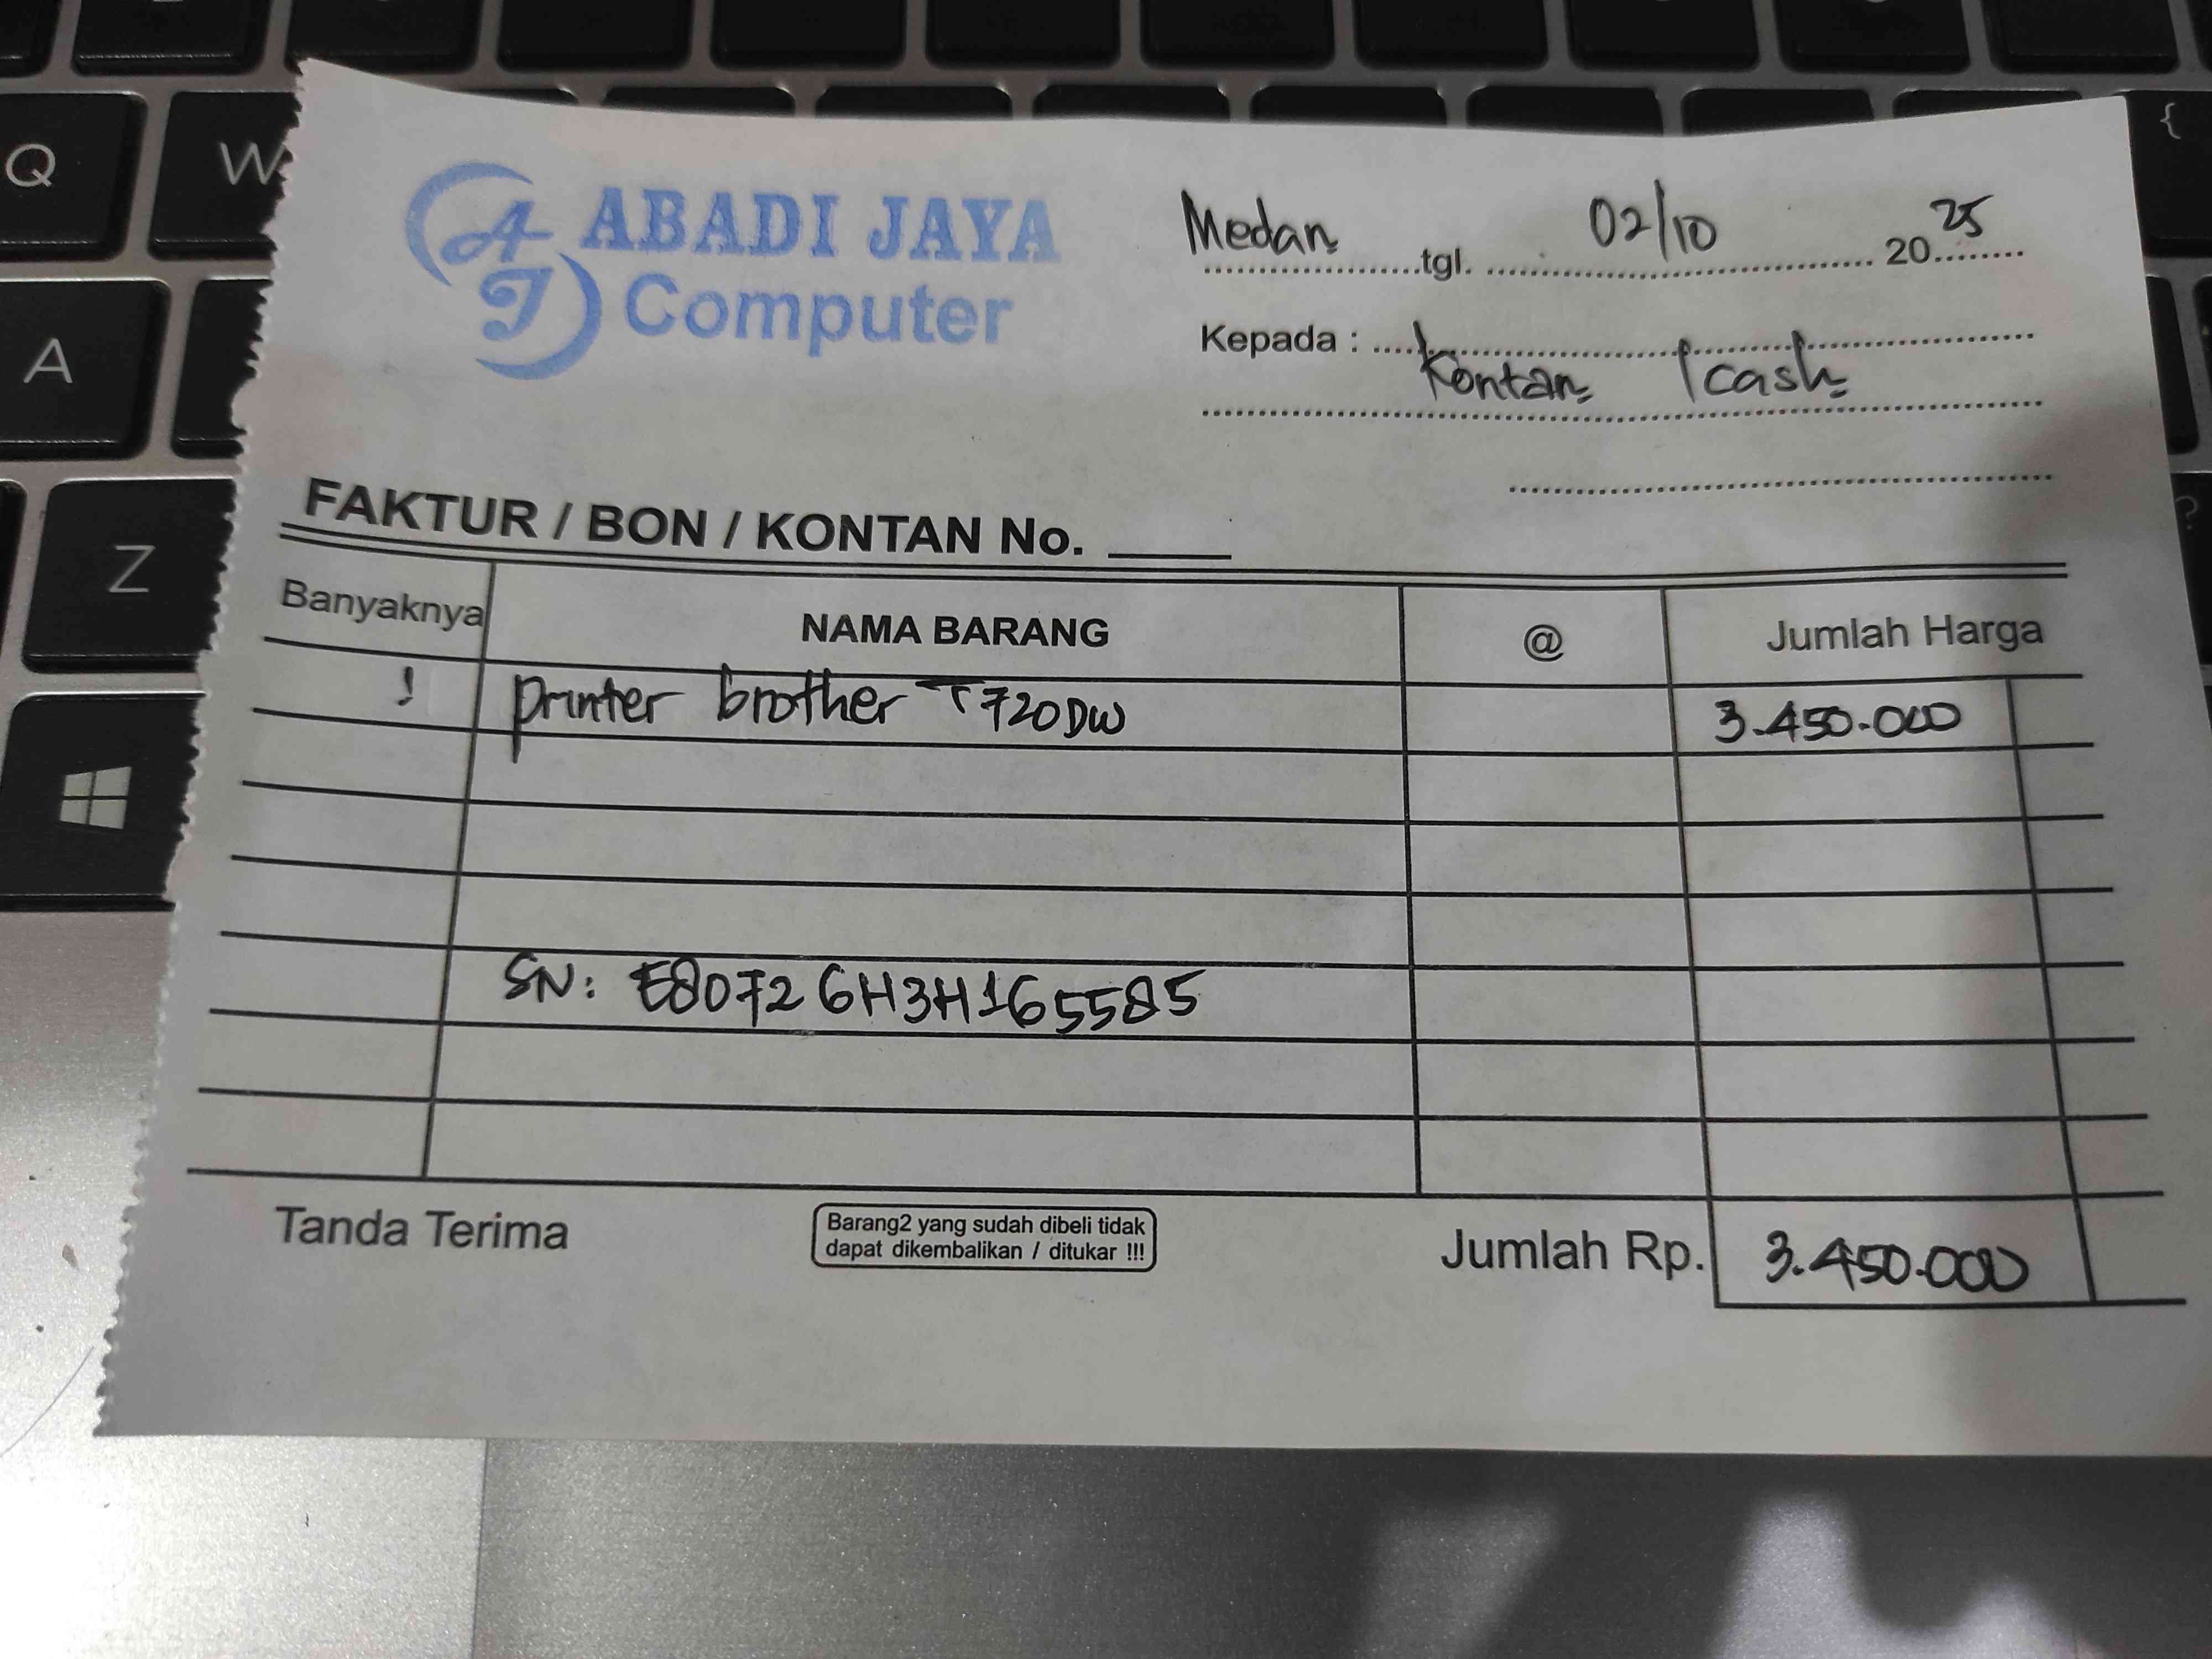 Q
W
{
A
Z
?
ABADI JAYA
Computer
AJ
Medan tgl. 02/10 2025
Kepada :
Kontan / cash
FAKTUR / BON / KONTAN No.
Banyaknya NAMA BARANG @ Jumlah Harga
1 printer brother T720DW 3.450.000
SN: E80726H3H165585
Tanda Terima
Barang2 yang sudah dibeli tidak
dapat dikembalikan / ditukar !!!
Jumlah Rp. 3.450.000